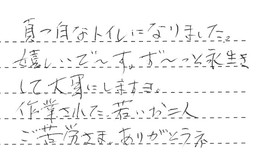 真っ白なトイレになりました。
嬉しいで～す。ず～っと永生き
して大事にしますヨ。
作業された若いお二人
ご苦労さま。ありがとうネ